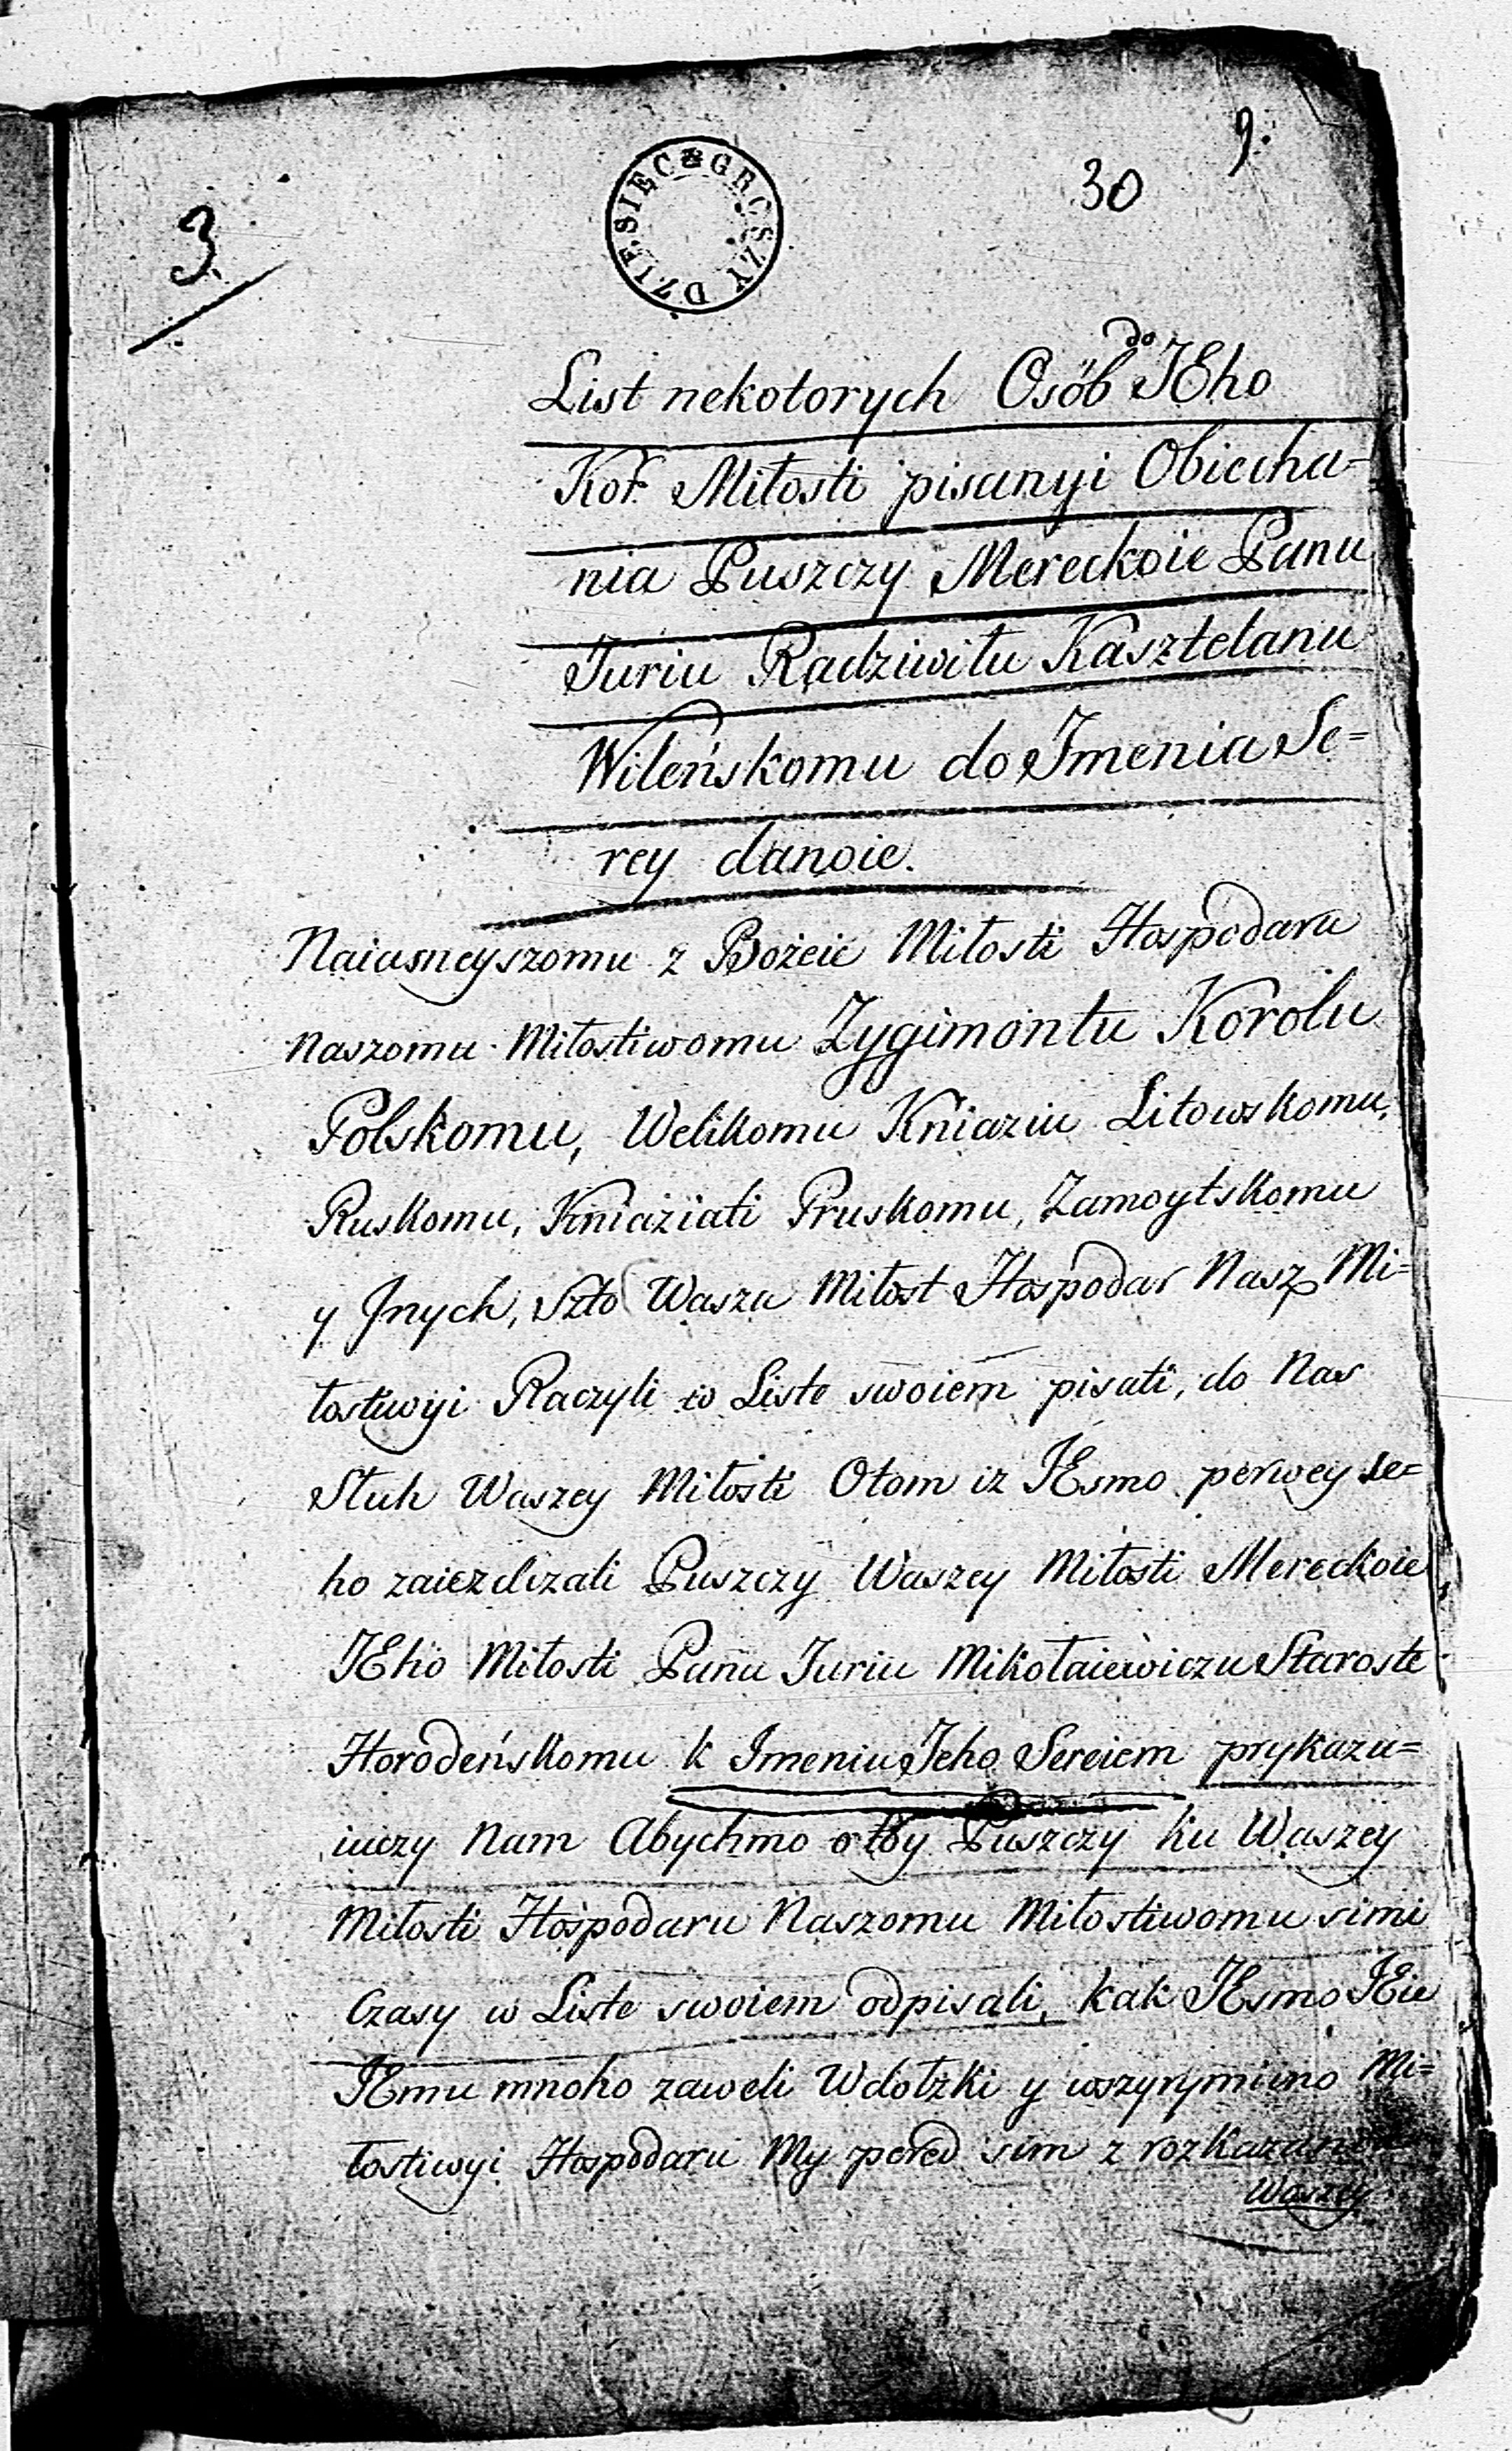 9.
30
3.
DZIESIĘC GROSZY
List nekotorych Osób do JEho
Kor. Miłosti pisanyi Obiecha=
nia Puszczy Mereckoie Panu
Juriu Radziwiłu Kasztelanu
Wileńskomu do Jmenia Se=
rey danoie.
Naiasneyszomu z Bożeie Miłosti Hospodaru
naszomu Miłostiwomu Zygimontu Korolu
Polskomu, Welikomu Kniaziu Litowskomu,
Ruskomu, Kniaziati Pruskomu, Zamoytskomu
y Jnych, Szto Wasza Miłost Hospodar Nasz Mi=
łostiwyi Raczyli w Liste swoiem pisati, do Nas
Słuh Waszey Miłosti Otom iz JEsmo perwey se=
ho zaiezdizali Puszczy Waszey Miłosti Mereckoie
JEho Miłosti Panu Juriu Mikołaiewiczu Staroste
Horodeńskomu k Imeniu Jeho Sereiem prykazu=
iuczy Nam Abychmo o toy Puszczy ku Waszey
Miłosti Hospodaru Naszomu Miłostiwomu simi
Czasy w Liste swoiem odpisali, kak JEsmo JEie
JEmu mnoho zaweli Wdołzki y Mi=
łostiwyi Hospodaru My pered sim z
Waszey